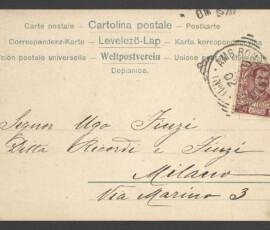 Carte postale – Cartolina postale – Postkarte
Correspondenz-Karte – Levelező-Lap – Karta korespond
nion postale universelle – Weltpostverein – Union posta
Dopisnice.
AMB. RO
02
Signor Ugo Finzi
Ditta Ricordi e Finzi
Milano
Via Marino 3